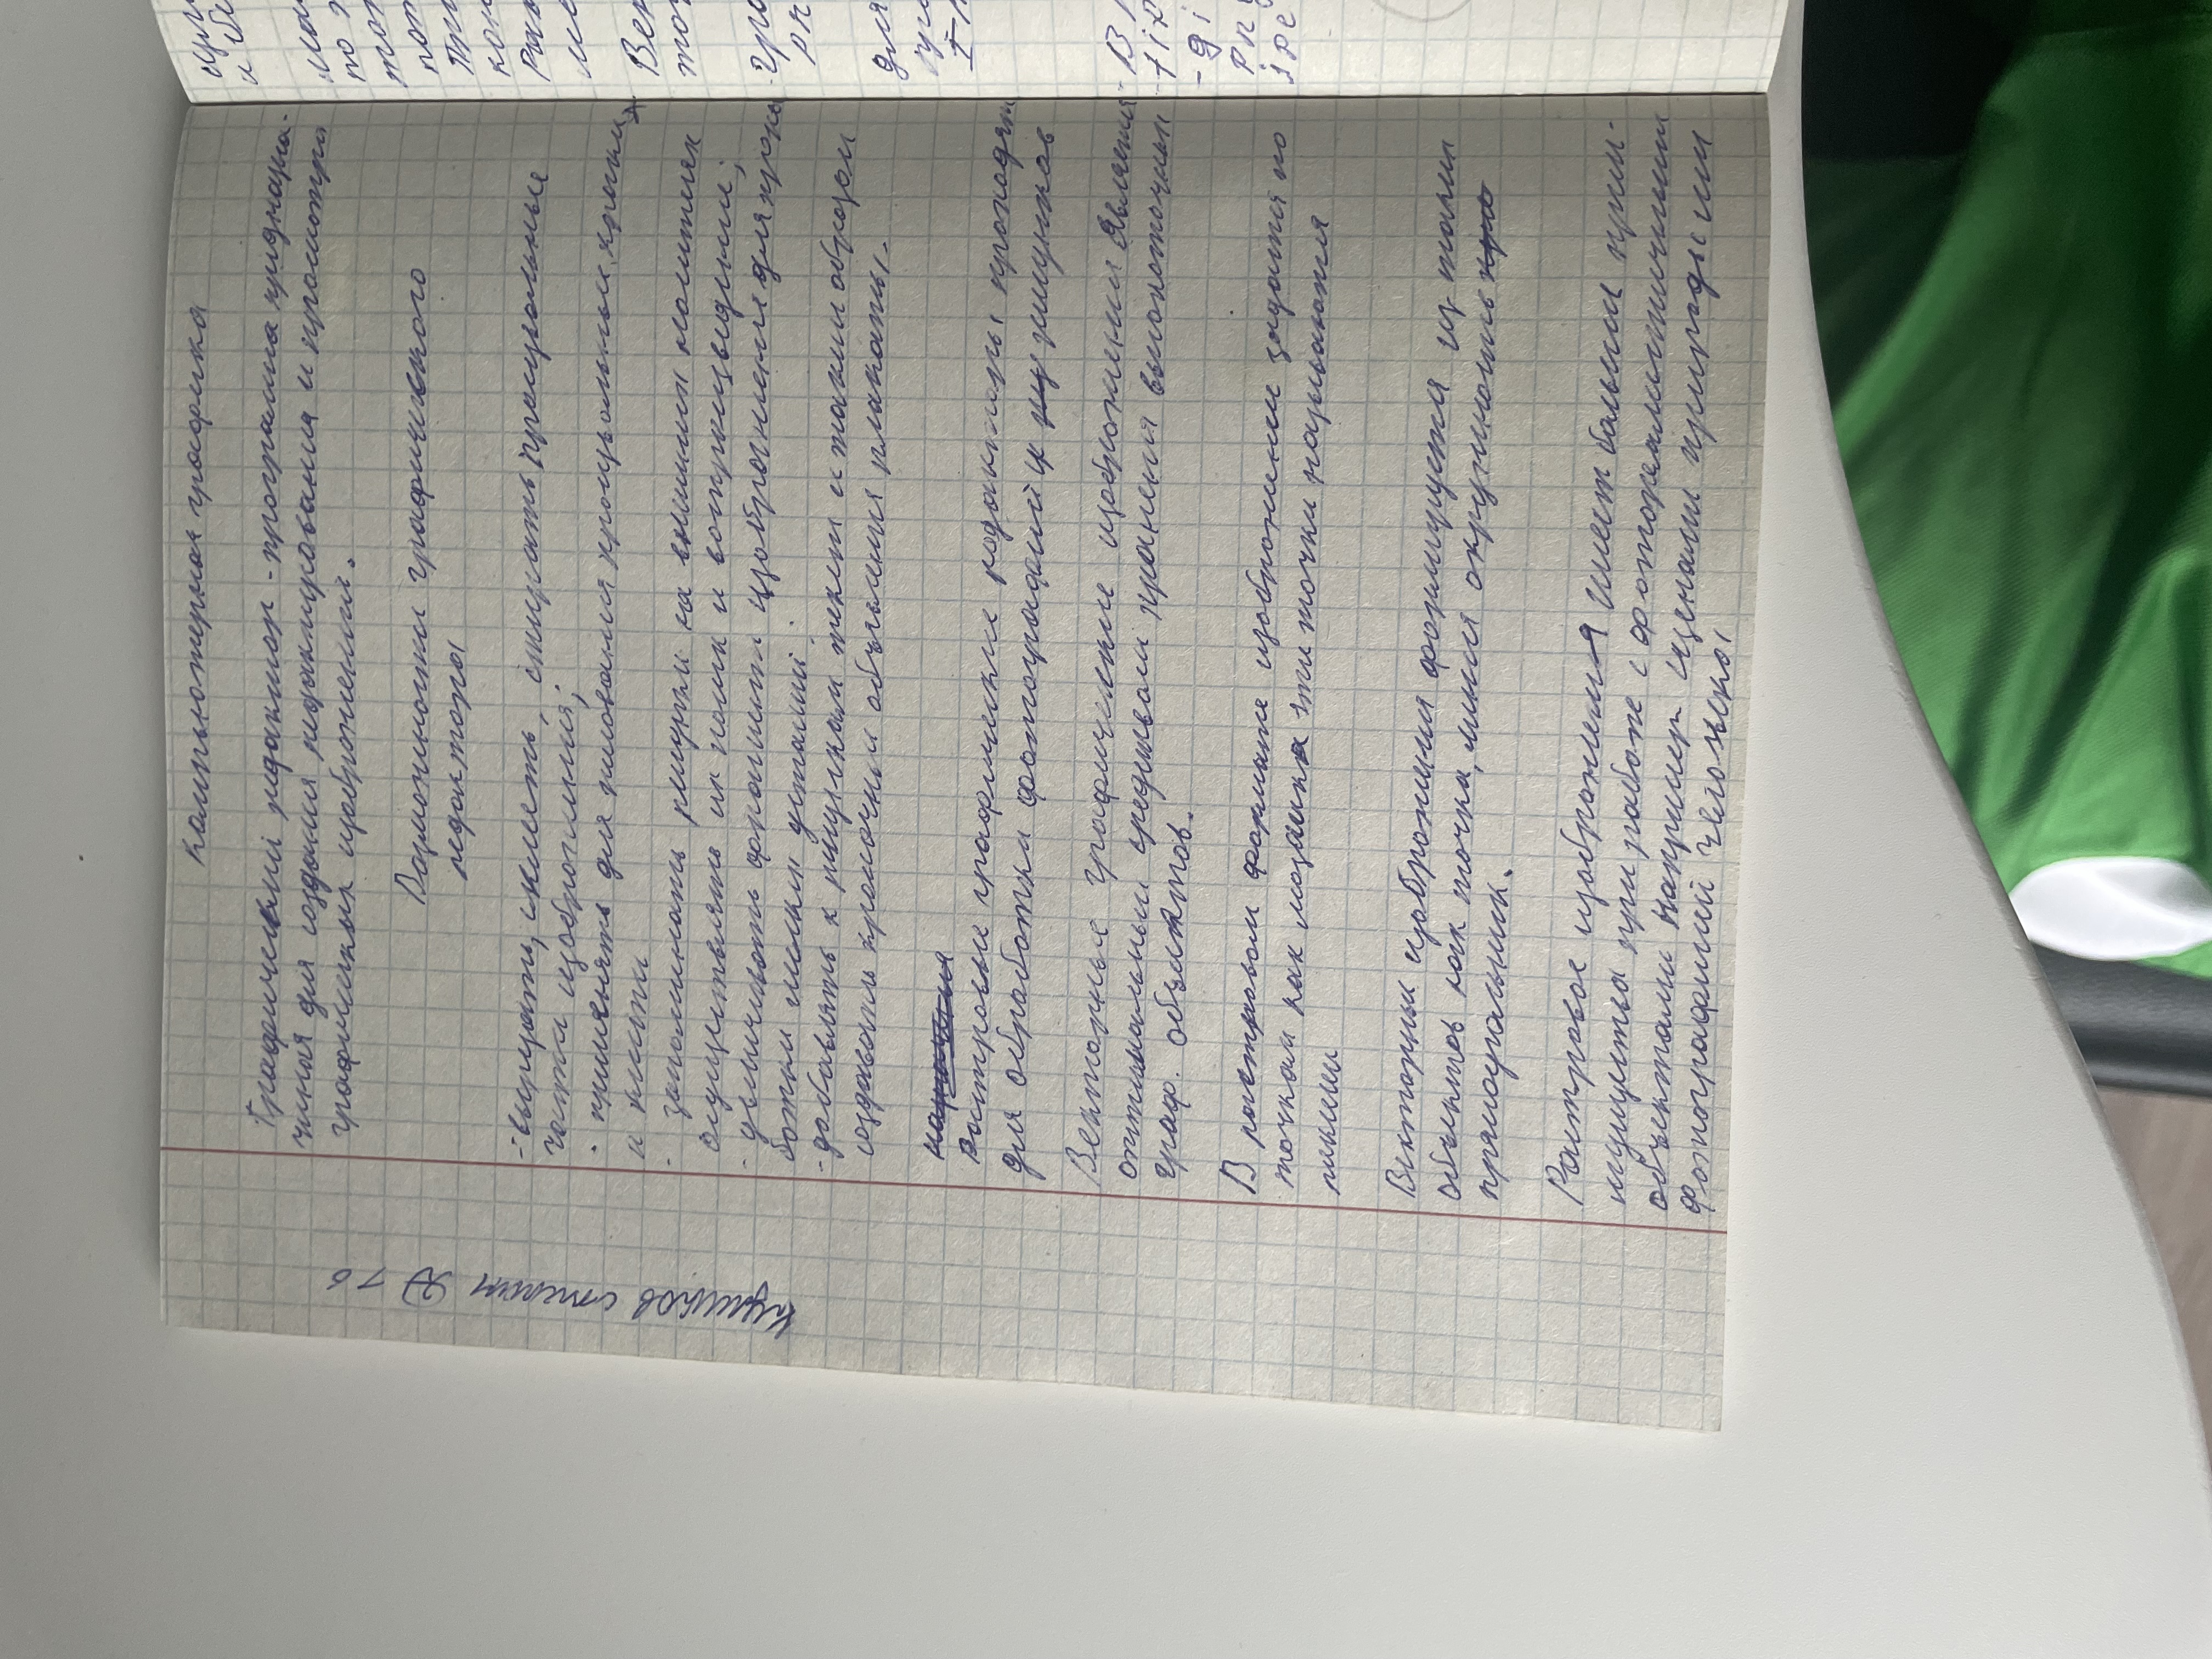 Компьютерная графика
Графический редактор - программа преднозна-
чиная для создания редактирования и просмотра
графичиных изображений.
Возможности графического
редакторы
- вырезать, склеять, стирать произвольные
части изображений;
- применять для рисования произвольных краски,
и кисти
- запоминать рисунки на внешних носителях
осуществлять их поиск и воспроизведений;
- увеличивать фрагменты изображения для прора
ботки мелких деталий
- добавлять к рисункам текст и таким образом
создавать красочны и объявления плакаты.
растровые графические редакторы, проподят
для обработки фотографий и рисунков
Векторные графические изображения являются
оптимальным средством хранения высокоточных
граф. объектов.
В растровом формате изображение задаётся по
точкам как мозаика эти точки называются
пиксели
Векторны изображения формируется из таких
объектов как точка, линия окружность
прямоугольник.
Растровое изображения имеет больших прим-
ищества при работе с фотореалистичными
объектами например сценами природы или
фотографией человека,
Куликов степан 7б
В
-